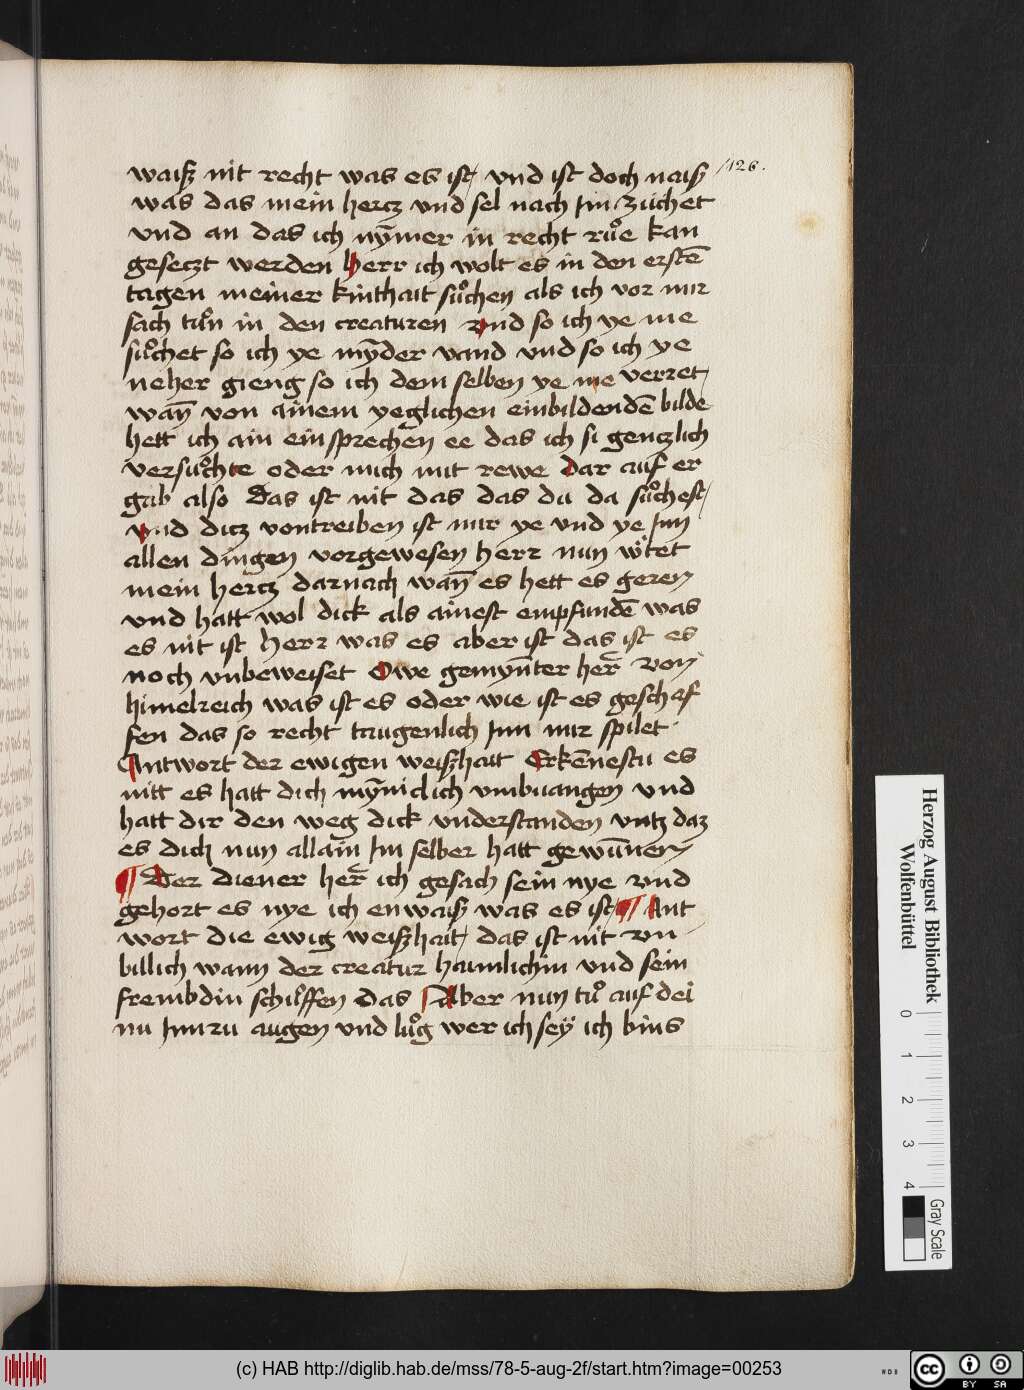 126.
waiſʒ nit recht was es iſt/ vnd iſt doch naiſʒ
was das mein hercz vnd ſel nach Im zuͤchet
vnd an das ich nym̄er in recht ruͦe kan
geſeczt werden herr ich wolt es in den erſtē
tagen meiner kinthait ſuͦchen als ich vor mir
ſach tuͦn in den creaturen vnd ſo ich ye me
ſuͦchet ſo ich ye mȳder vand vnd ſo ich ye
neher gieng ſo ich dem ſelben ye me verret/
wan̄ von ainem yeglichen einbildendē bilde
hett ich ain einſprechen ee das ich ſi genczlich
verſuͦchte oder mich mit rewe dar auf er
gab alſo das iſt nit das das du da ſuͦcheſt/
vnd dicz vontreiben iſt mir ye vnd ye Inn
allen dingen vorgeweſen herr nun wͤtet
mein hercz darnach wan̄ es hett es geren
vnd hatt wol dick als aineſt empfundē was
es nit iſt herr was es aber iſt das iſt es
noch vnbeweiſet Owe gemyn̄ter her̄ von
himelreich was iſt es oder wie iſt es geſchaf
fen das ſo recht taugenlich Inn mir ſpilet
Antwort der ewigen weiſʒhait Erkēneſtu es
nitt es hatt dich mȳniclich vmbuangen vnd
hatt dir den weg dick vnderſtanden vntz daz
es dich nun allain Im ſelber hatt gewūnen
¶ Der diener her̄ ich geſach ſein nye vnd
gehort es nye ich enwaiſʒ was es iſt/ ¶ Ant
wort die ewig weiſʒhait/ das iſt nit vn
billich wann der creatur haimlichin vnd ſein
frembdin ſchuͦffen das Aber nun tuͦ auf dei
nu Innru augen vnd luͦg wer ich ſeÿ ich bins
Herzog August Bibliothek
Wolfenbüttel
0 1 2 3 4
Gray Scale
(c) HAB http://diglib.hab.de/mss/78-5-aug-2f/start.htm?image=00253
cc BY SA